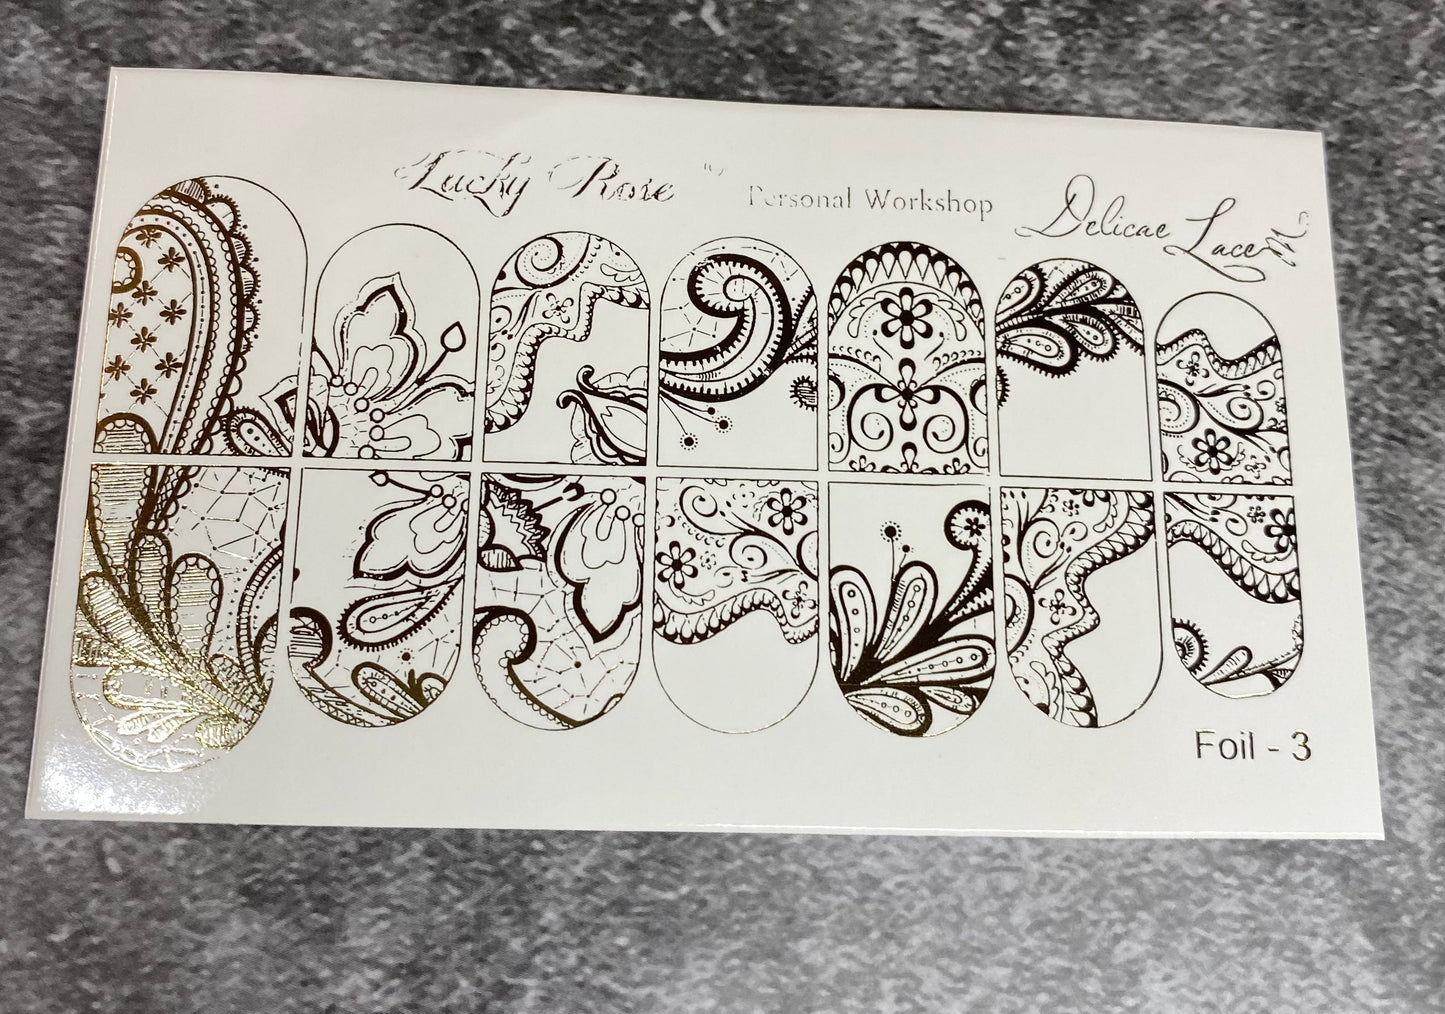 "Lucky Rose"
Personal Workshop
Delicae Lace
Foil - 3